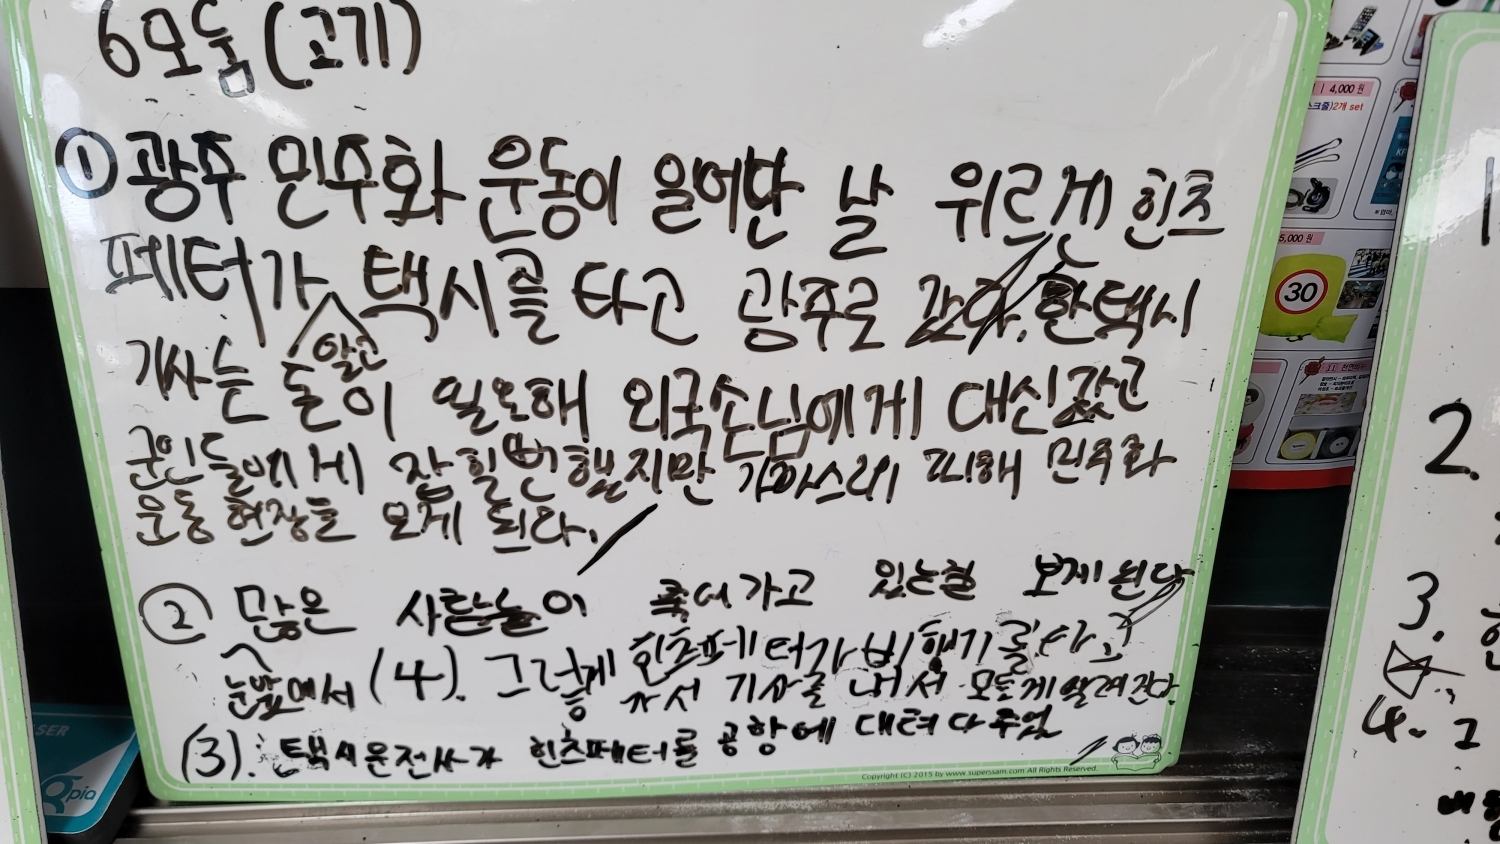 6모둠(고기)
①광주 민주화 운동이 일어난 날 위르겐 힌츠
페터가 택시를 타고 광주로 갔다. 한 택시
알고
기사는 돈이 필요해 외국손님에게 대신갔고
군인들에게 잡힐뻔했지만 가까스로 피해 민주화
운동 현장을 보게 된다.
② 많은 사람들이 죽어가고 있는걸 보게 된다
눈앞에서 (4). 그렇게 힌츠페터가 비행기를 타고
가서 기사를 내서 모든게 알려진다.
(3). 택시운전사가 힌츠페터를 공항에 데려다 주었
Copyright (C) 2015 by www.superssam.com All Rights Reserved.
4,000 원
2개 set
5,000 원
30
SER
gpia
1
2.
3.
4. 그